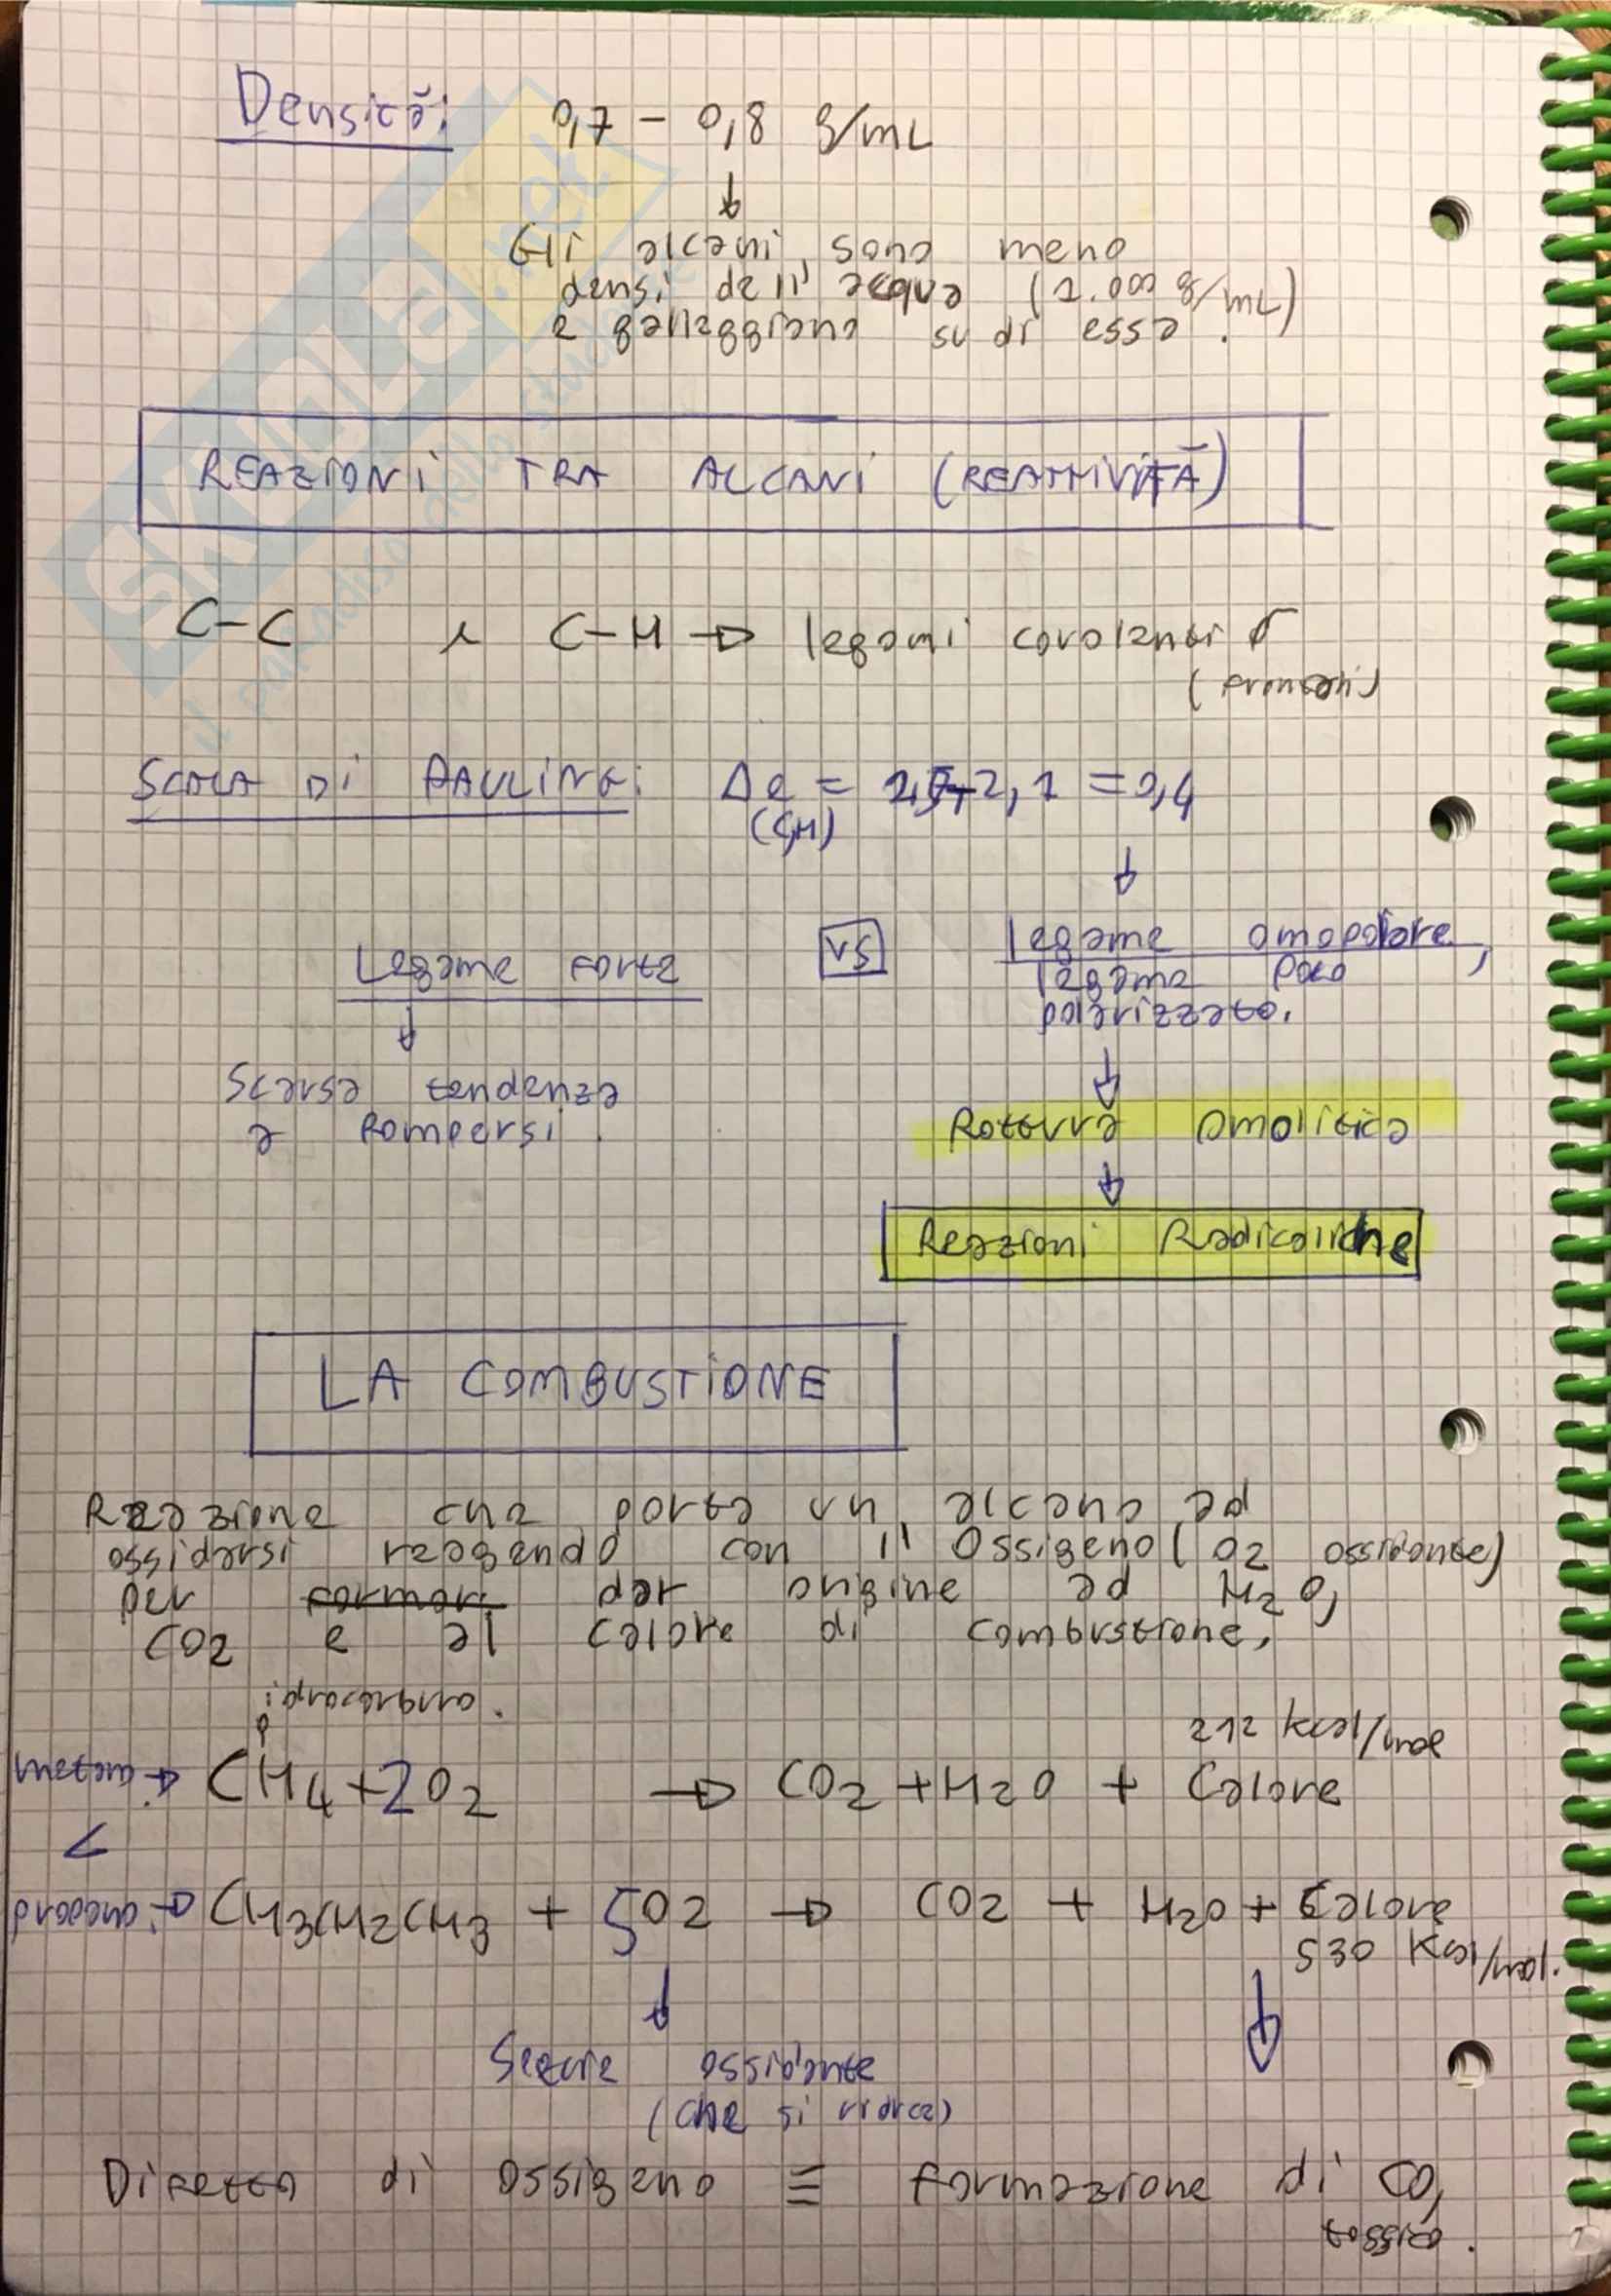 Densità: 0,7 - 0,8 g/mL
↓
Gli alcani sono meno
densi dell'acqua (1.000 g/mL)
e galleggiano su di essa.
REAZIONI TRA ALCANI (REATTIVITÀ)
C-C e C-H → legami covalenti σ
(frontali)
SCALA DI PAULING: Δe = 2,5-2,1 = 0,4
(C,H)
↓
Legame forte VS legame omopolare,
legame poco
polarizzato.
↓ ↓
Scarsa tendenza
a rompersi.
Rottura omolitica
↓
Reazioni Radicaliche
LA COMBUSTIONE
Reazione che porta un alcano ad
ossidarsi reagendo con l'Ossigeno (O2 ossidante)
per formare dar origine ad H2O,
CO2 e al calore di combustione.
idrocarburo.
212 kcal/mol
metano → CH4 + 2O2 → CO2 + H2O + Calore
<
propano → CH3CH2CH3 + 5O2 → CO2 + H2O + Calore
530 Kcal/mol.
↓ ↓
ossidante
(che si riduce)
Difetto di ossigeno ≡ formazione di CO,
tossico.
SKUOLA.net
il paradiso dello studente